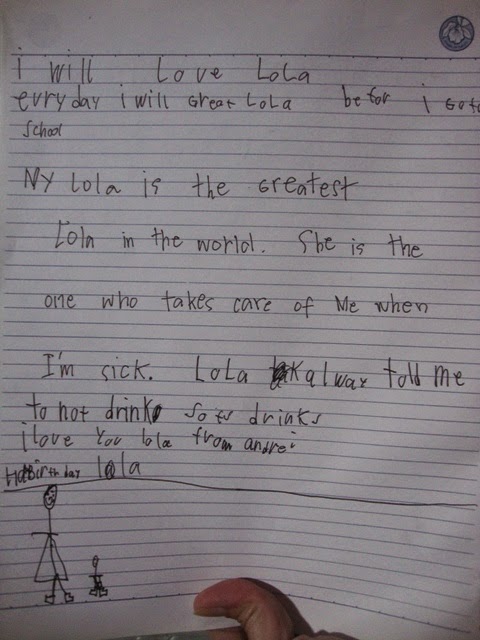 i will love LoLa
evry day i will great LoLa befor i go to
school
My Lola is the Greatest
Lola in the world. She is the
one who takes care of Me when
I'm sick. LoLa alwax told me
to not drink softs drinks
i love You lola from andrei
birthday lola